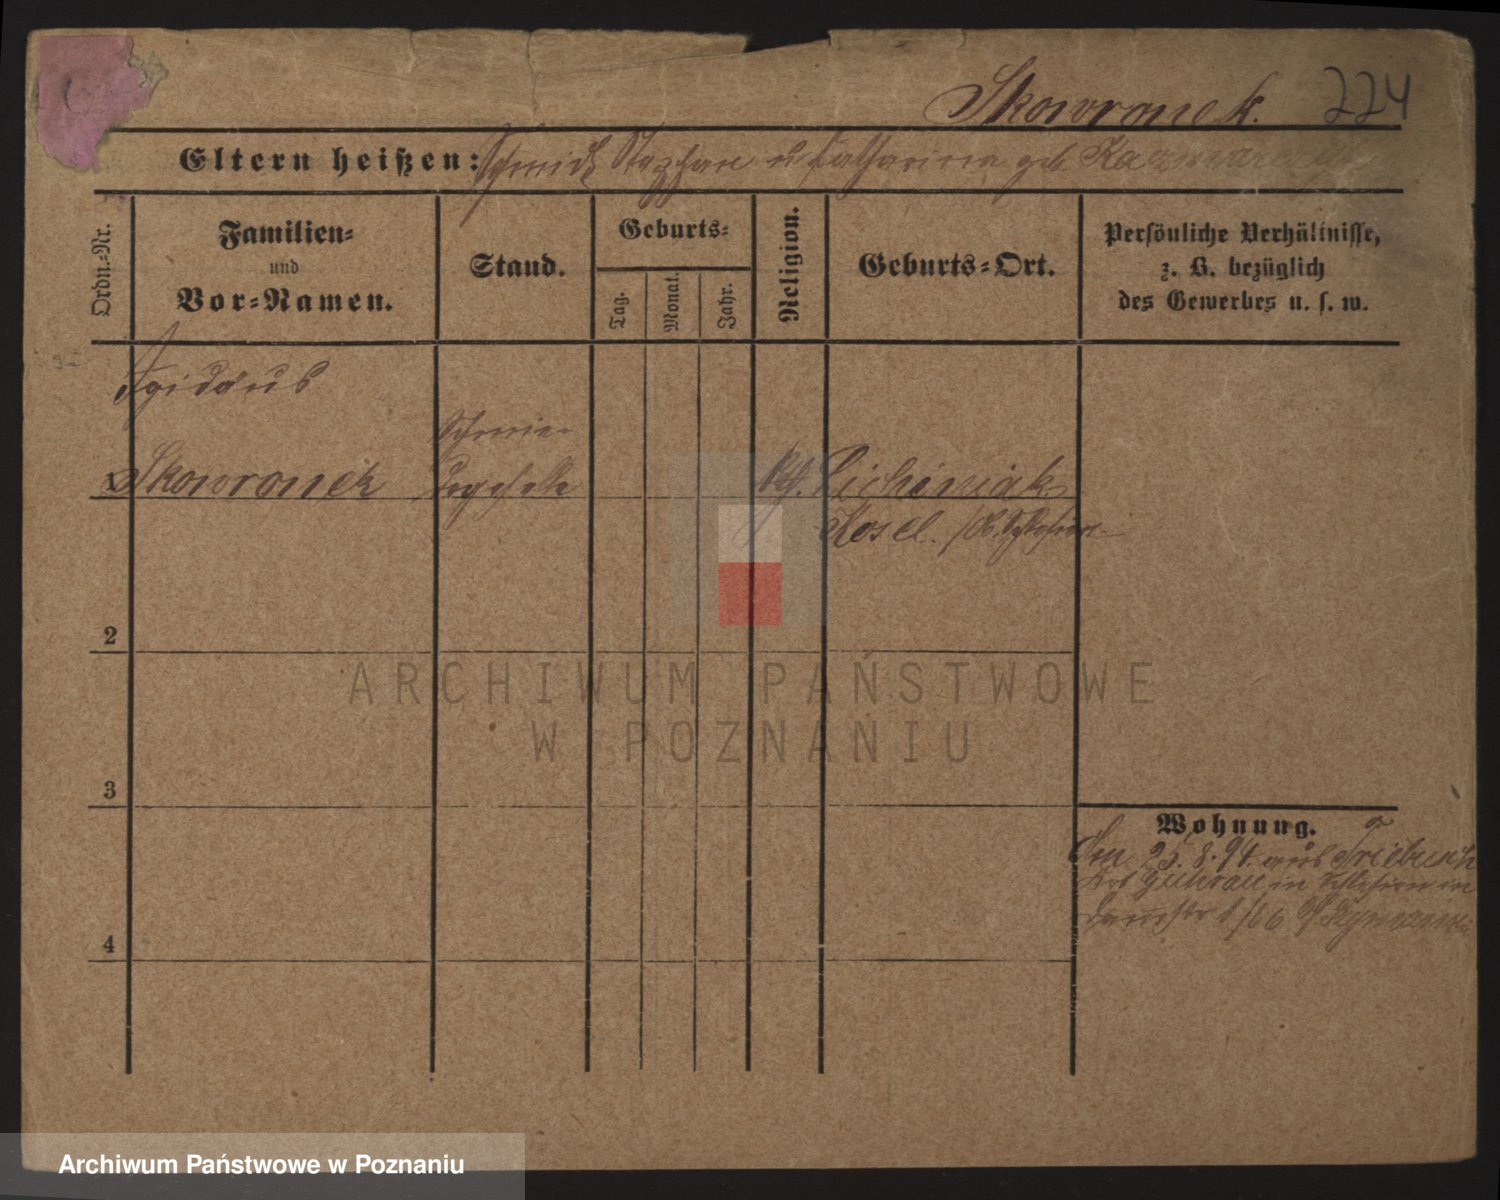 Skowronek. 224
Eltern heißen: Schmidt Stephan u Katharina geb.
Ordn.-Nr.
Familien-
und
Vor-Namen.
Stand.
Geburts-
Tag.
Monat.
Jahr.
Religion.
Geburts-Ort.
Persönliche Verhältnisse,
z. B. bezüglich
des Gewerbes u. s. w.
Schmie-
1 Skowronek degeselle kth.
Kosel.
2
3
4
Wohnung.
Am 25.8.94. aus
Guhrau in Schlesien in
ARCHIWUM PAŃSTWOWE
W POZNANIU
Archiwum Państwowe w Poznaniu